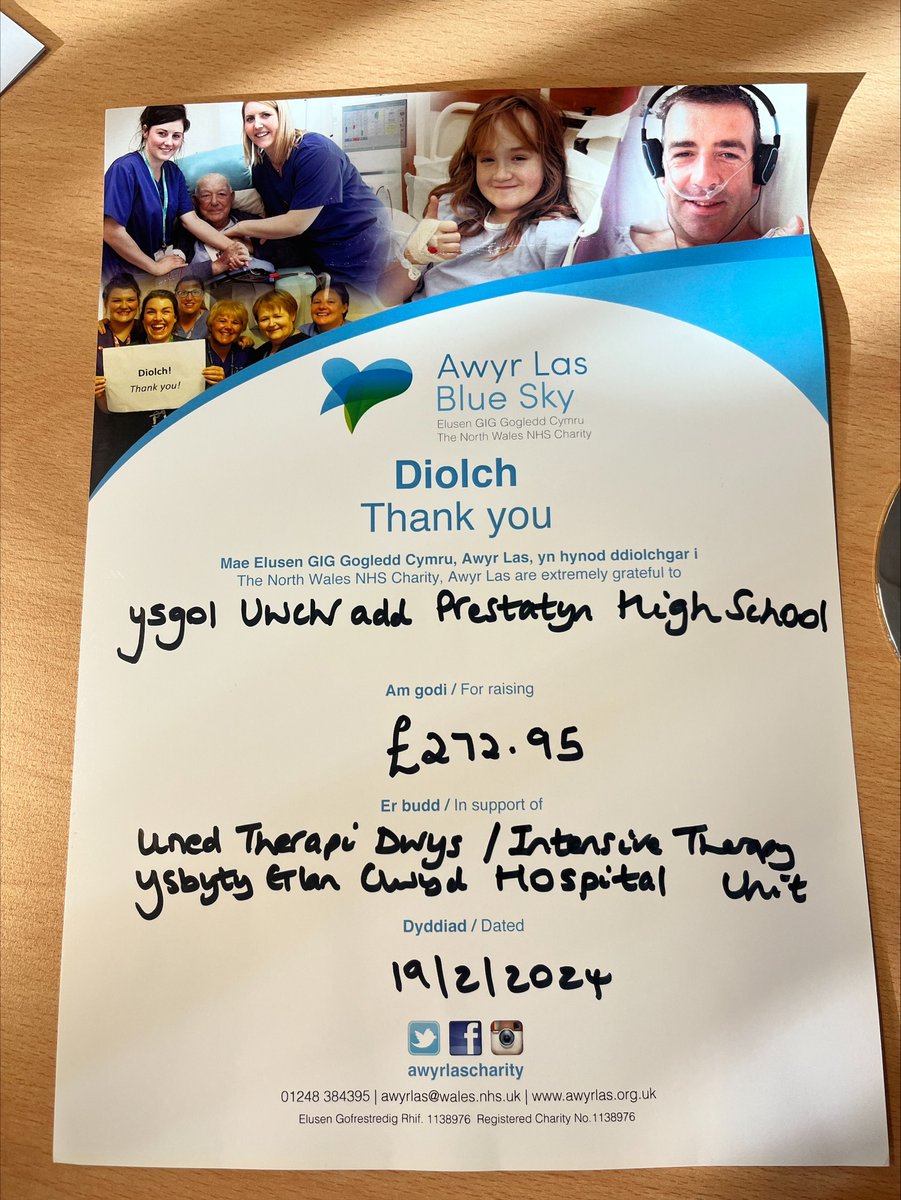 Diolch!
Thank you!
Awyr Las
Blue Sky
Elusen GIG Gogledd Cymru
The North Wales NHS Charity
Diolch
Thank you
Mae Elusen GIG Gogledd Cymru, Awyr Las, yn hynod ddiolchgar i
The North Wales NHS Charity, Awyr Las are extremely grateful to
ysgol Uwchradd Prestatyn High School
Am godi / For raising
£272.95
Er budd / In support of
Uned Therapi Dwys / Intensive Therapy
ysbyty Glan Clwyd Hospital Unit
Dyddiad / Dated
19/2/2024
awyrlascharity
01248 384395 | awyrlas@wales.nhs.uk | www.awyrlas.org.uk
Elusen Gofrestredig Rhif. 1138976 Registered Charity No.1138976